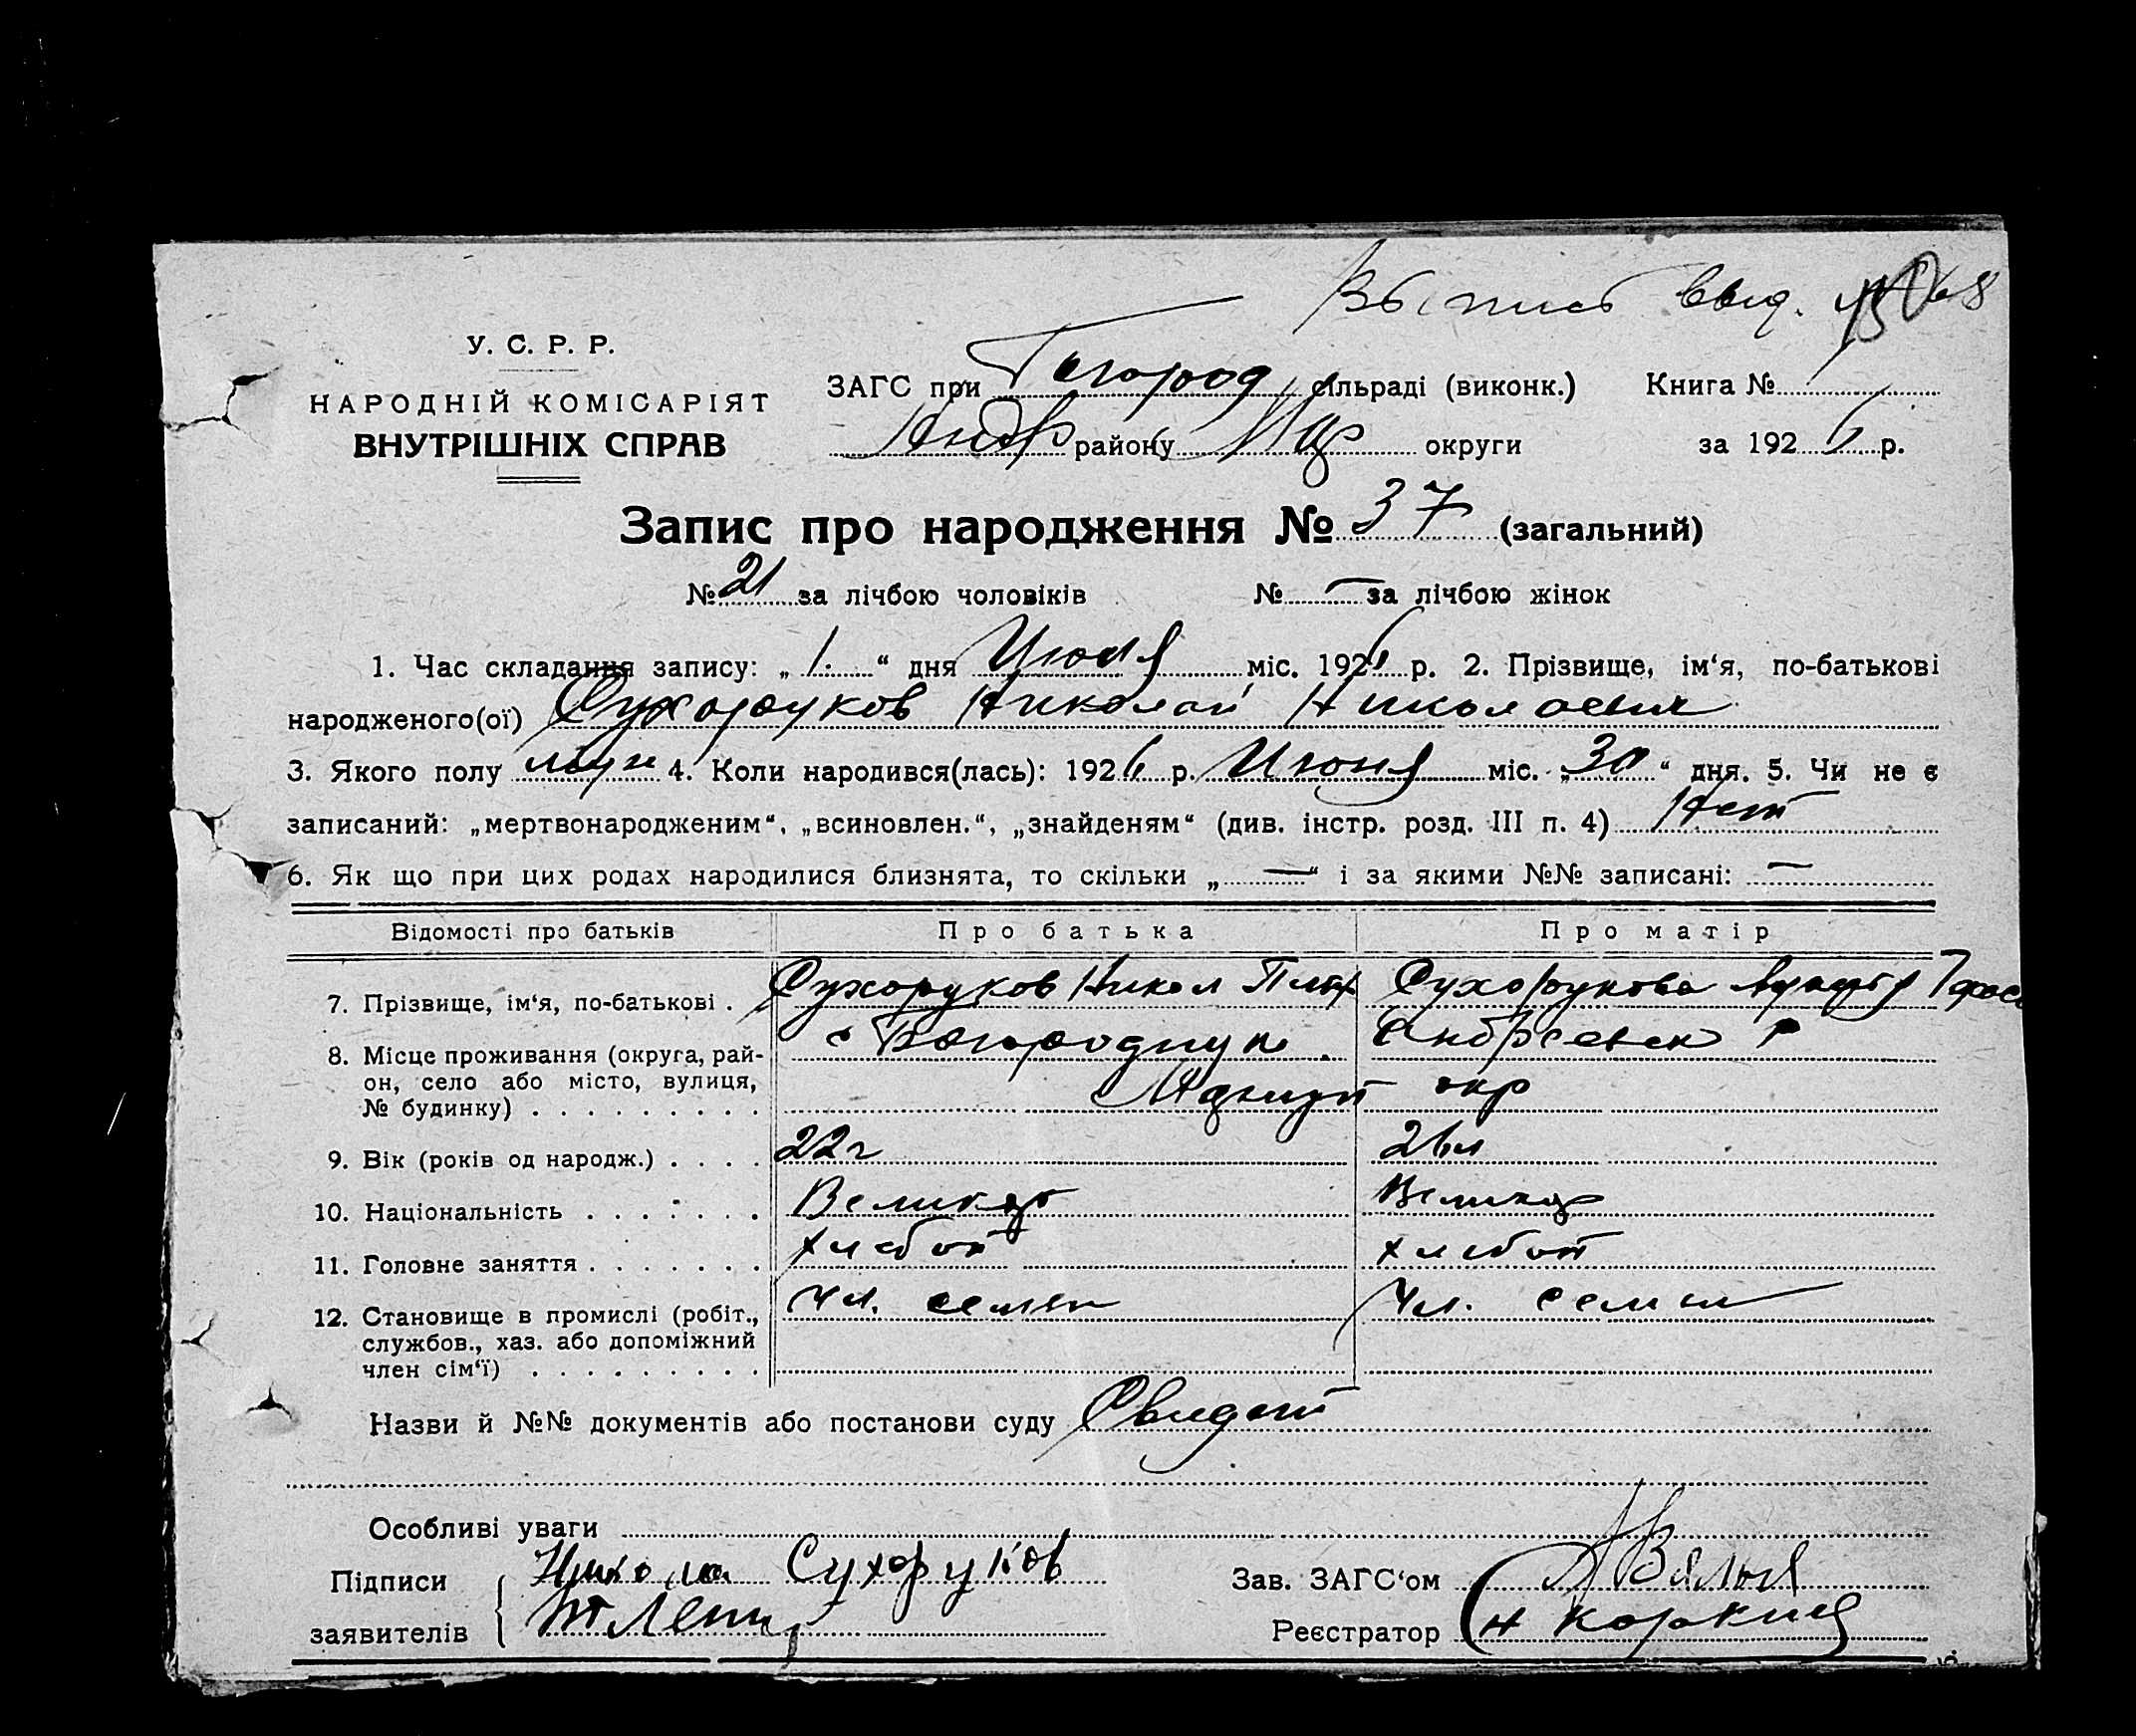 Выпись выд.
У. С. Р. Р.
НАРОДНІЙ КОМІСАРІЯТ
ВНУТРІШНІХ СПРАВ
ЗАГС при сільраді (виконк.) Книга №
Андр району Мар округи за 1926 р.
Запис про народження № 37 (загальний)
№ 21 за лічбою чоловіків № — за лічбою жінок
1. Час складання запису: „ 1. “ дня Июля міс. 1926 р. 2. Прізвище, ім‘я, по-батькові
народженого(ої) Сухоруков Николай Николаевич
3. Якого полу муж 4. Коли народився(лась): 1926 р. Июня міс. „ 30 “ дня. 5. Чи не є
записаний: „мертвонародженим“, „всиновлен.“, „знайденям“ (див. інстр. розд. III п. 4) Нет
6. Як що при цих родах народилися близнята, то скільки „ — “ і за якими №№ записані: —
Відомості про батьків Про батька Про матір
7. Прізвище, ім‘я, по-батькові . Сухоруков Никол Сухорукова
8. Місце проживання (округа, рай- Андреевск р
он, село або місто, вулиця,
№ будинку) . . . . . . . . . окр
9. Вік (років од народж.) . . . . 22 г 26 л
10. Національність . . . . . . . Великор Великор
11. Головне заняття . . . . . . . хлебоп хлебоп
12. Становище в промислі (робіт., Чл. семьи Чл. семьи
службов., хаз. або допоміжний
член сім‘ї) . . . . . . . . .
Назви й №№ документів або постанови суду Свидет
Особливі уваги
Підписи Никола Сухоруков Зав. ЗАГС‘ом
заявителів Реєстратор Н Коркин